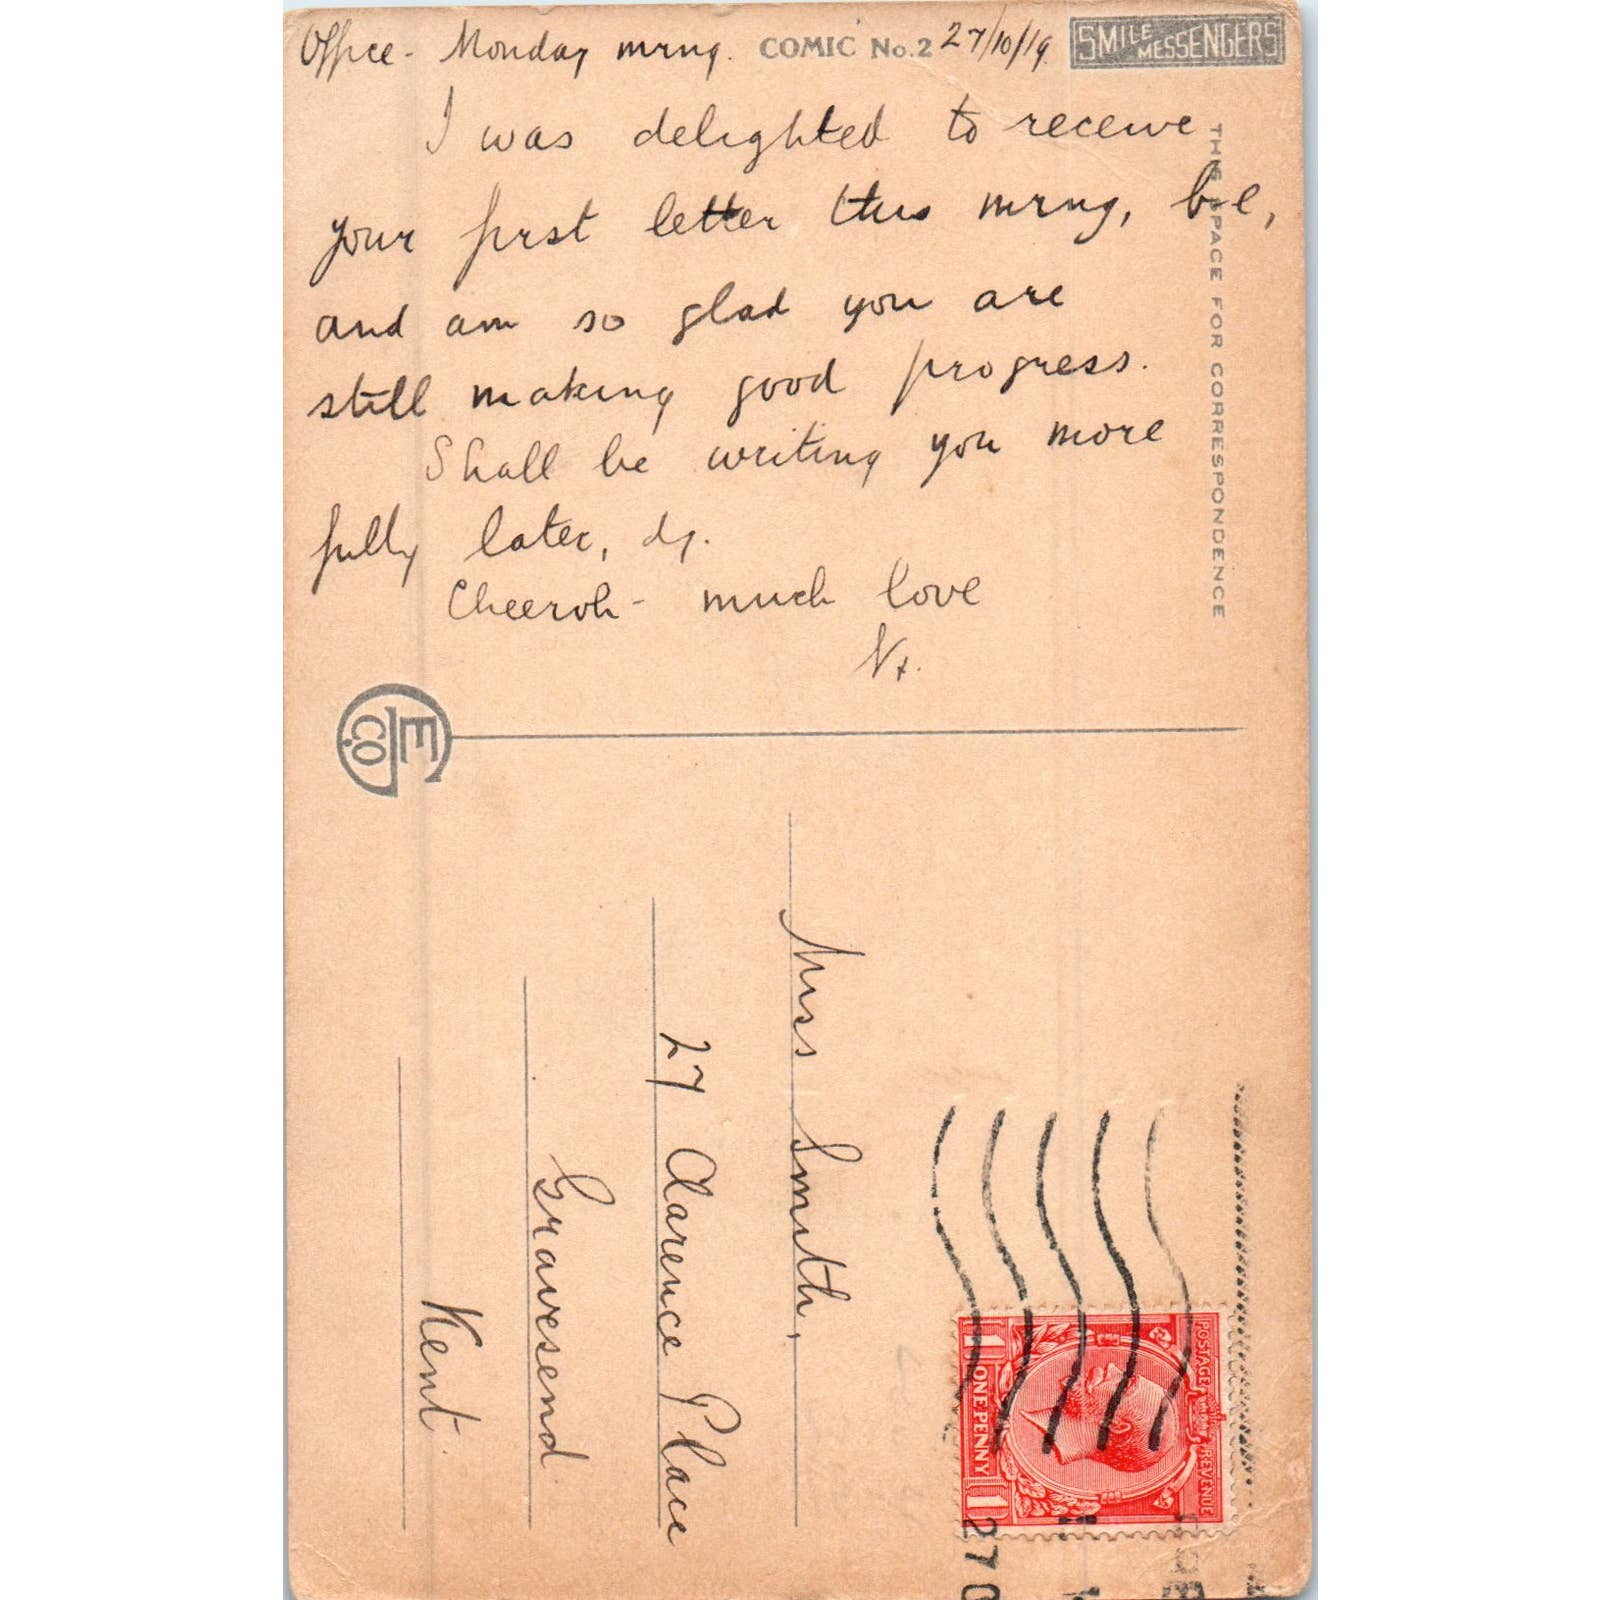 Office - Monday mrng. COMIC No. 2 27/10/19.
SMILE MESSENGERS
I was delighted to receive
your first letter this mrng,
and am so glad you are
still making good progress.
Shall be writing you more
fully later, dg.
Cheeroh - much love
THIS SPACE FOR CORRESPONDENCE
E Co
Miss Smith,
27 Clarence Place
Gravesend
Kent.
POSTAGE REVENUE
1 ONE PENNY 1